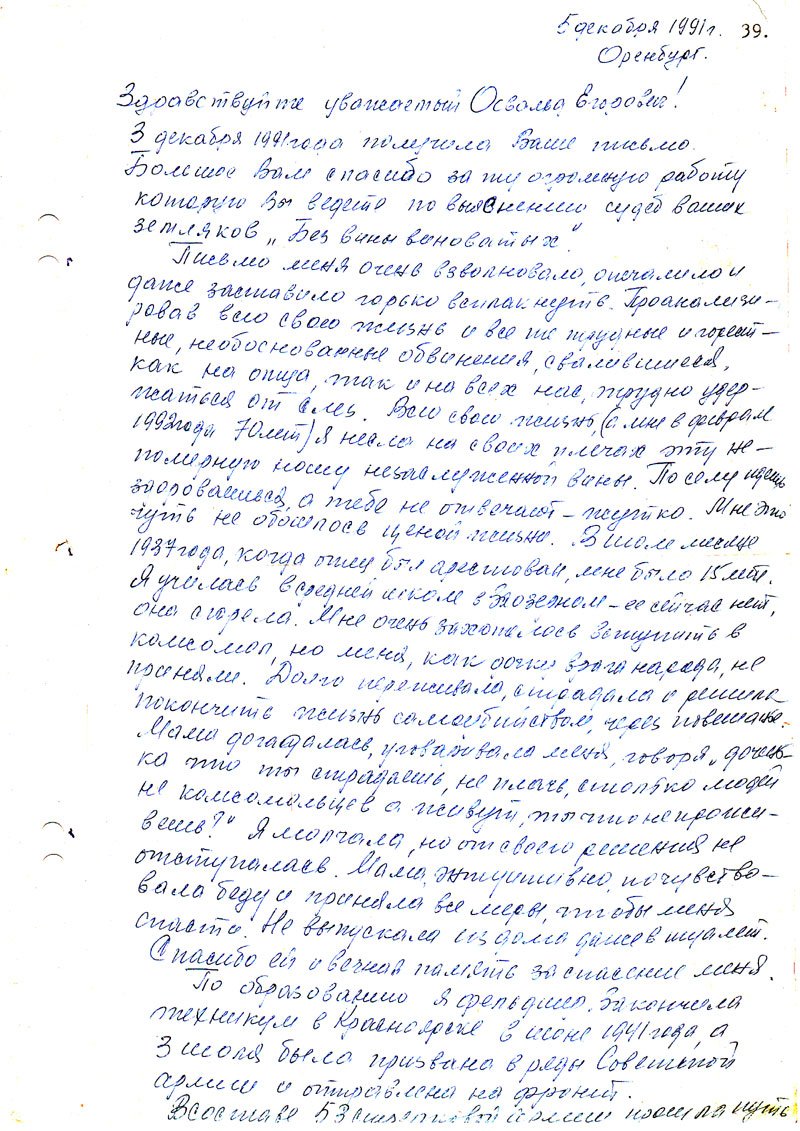 5 декабря 1991 г. 39.
Оренбург.
Здравствуйте уважаемый Освальд Егорович!
3 декабря 1991 года получила Ваше письмо.
Большое Вам спасибо за ту огромную работу
которую Вы ведете по выяснению судеб ваших
земляков „Без вины виноватых".
Письмо меня очень взволновало, опечалило и
даже заставило горько всплакнуть. Проанализи-
ровав всю свою жизнь и все те трудные и горест-
ные, необоснованные обвинения, свалившиеся,
как на отца, так и на всех нас, трудно удер-
жаться от слез. Всю свою жизнь, (а мне в феврале
1992 года 70 лет) я несла на своих плечах эту не-
померную ношу незаслуженной вины. По селу идешь
здороваешься, а тебе не отвечают – жутко. Мне это
чуть не обошлось ценой жизни. В июле месяце
1937 года, когда отец был арестован, мне было 15 лет.
Я училась в средней школе в – ее сейчас нет,
она сгорела. Мне очень захотелось вступить в
комсомол, но меня, как дочку врага народа, не
приняли. Долго переживала, страдала и решила
покончить жизнь самоубийством, через повешанье.
Мама догадалась, уговаривала меня, говоря „дочень-
ка что ты страдаешь, не плачь, столько людей
не комсомольцев а живут, ты что не прожи-
вешь?" Я молчала, но от своего решения не
отступалась. Мама, интуитивно, почувство-
вала беду и приняла все меры, чтобы меня
спасти. Не выпускала из дома даже в туалет.
Спасибо ей и вечная память за спасение меня.
По образованию я фельдшер. Закончила
техникум в Красноярске в июне 1941 года, а
3 июля была призвана в ряды Советской
армии и отправлена на фронт.
В составе 53 стрелковой армии прошла путь